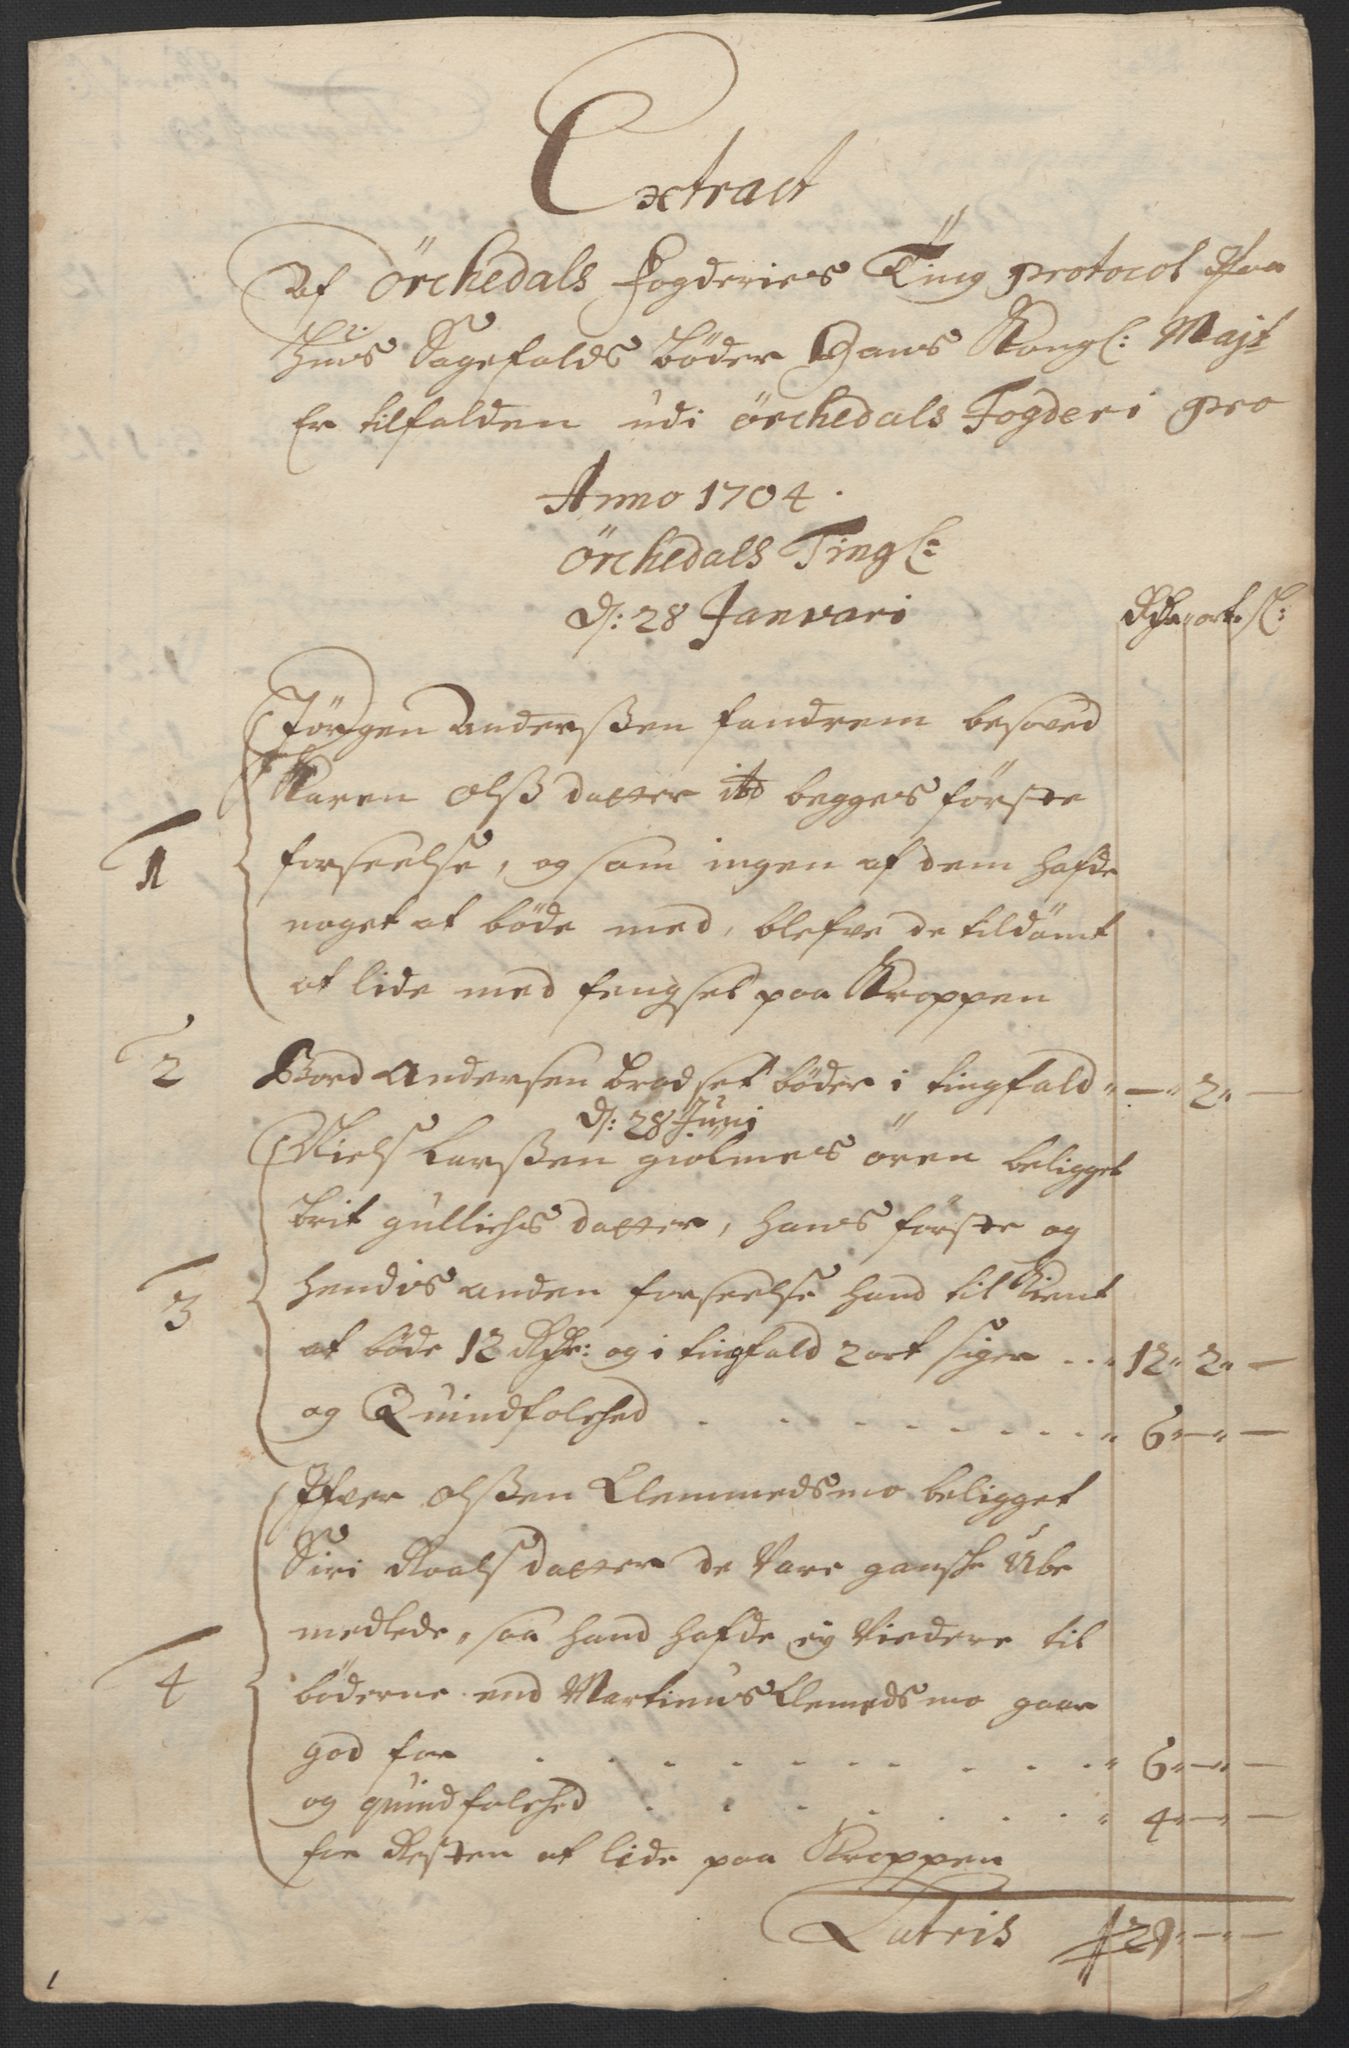 Extract
Af Örchedals Fogderies Ting protocol Paa
huis Sagefalds böder Hans Kongl: Majt
Er tilfalden udi Örchedals Fogderi pro
Anno 1704.
Örchedals Tingl:
D: 28 Janvari
Rdr ort s:
1 Jörgen Anderßen fandrem besoved
Karen Olß datter ibd begges förste
forseelse, og som ingen af dem hafde
noget at böde med, blefve de tildömt
at lide med fengsel paa Kroppen
2 Bord Andersen bradset böder i tingfald " — " 2 " —
D: 28 Juni
3 Niels Larßen giölmes ören beligget
brit gullichs datter, hans förste og
hendis anden forseelse hand tilkient
at böde 12 Rdr: og i tingfald 2 ort siger .. " 12 " 2 " —
og Quindfolched . . . . . . . . " 6 " — " —
4 Ifver Olßen Klemmedsmo beligget
Siri Roals datter de Vare gansche Ube
medlede, saa hand hafde ey Viedere til
böderne end Martinus Klemedsmo gaar
god for . . . . . . . . . " 6 " — " —
og quindfolched . . . . . . . " 4 " — " —
for Resten at lide paa Kroppen
Latris 29 " — " —
1